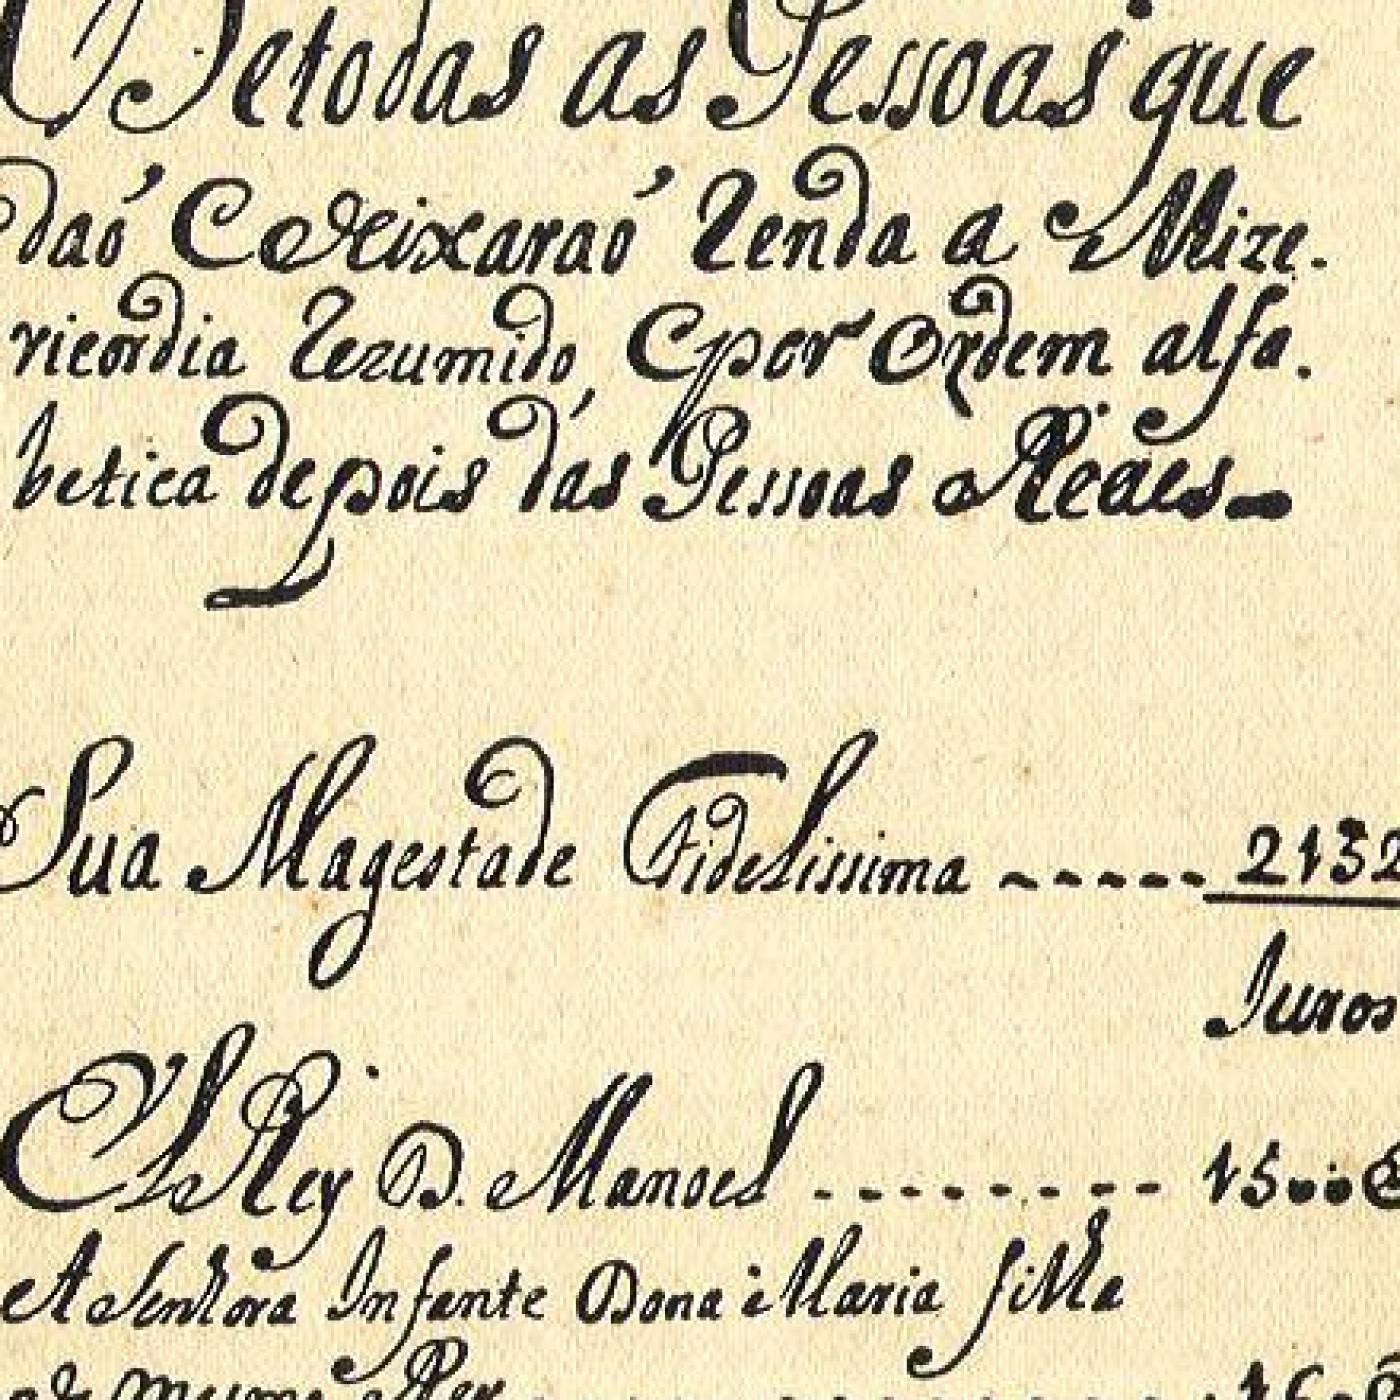 De todas as Pessoas que
daó, e deixaraó Renda a Mize.
ricordia Rezumido, e por Ordem alfa.
betica depois das Pessoas Reaes
Sua Magestade Fidelissima ----- 2132
Juros
El Rey D. Manoel -------- 15
A Senhora Infante Dona Maria filha
do mesmo Rey